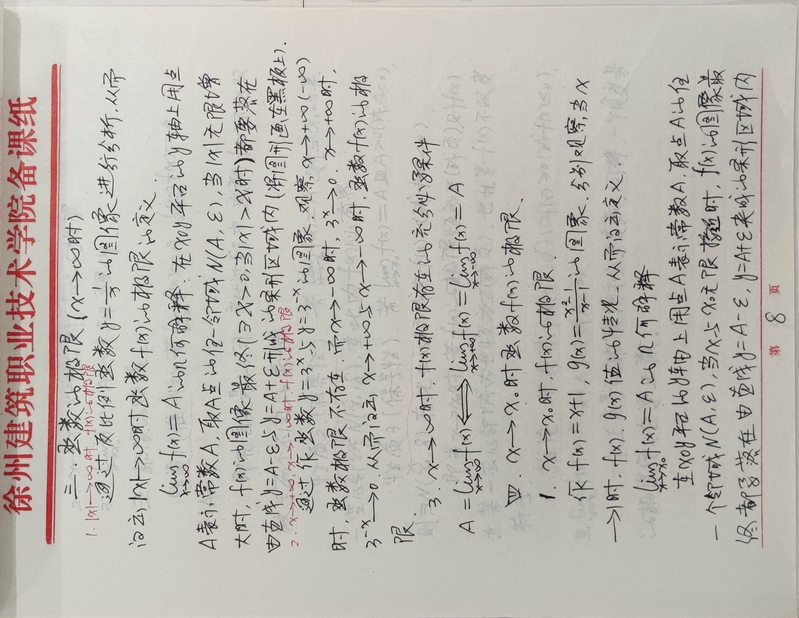 徐州建筑职业技术学院备课纸
三.函数的极限(x→∞时)
1. |x|→∞时 f(x)的极限
通过反比例函数y=1/x的图像进行分析,从而
给出|x|→∞时函数f(x)的极限的定义
lim x→∞ f(x)=A的几何解释:在xoy平面的y轴上用点
A表示常数A,取A点的任一邻域N(A,ε),当|x|无限增
大时,f(x)的图像最终(∃X>0,当|x|>X时)都要落在
由直线y=A-ε与y=A+ε形成的条形区域内(将图形画在黑板上).
2. x→+∞, x→-∞时 f(x)的极限
通过作函数y=3ˣ与y=3⁻ˣ的图象.观察x→+∞(-∞)
时,函数极限不存在.而x→-∞时,3ˣ→0. x→+∞时,
3⁻ˣ→0.从而给出x→+∞与x→-∞时.函数f(x)的极
限.
3. x→∞时.f(x)极限存在的充分必要条件
A=lim x→∞ f(x)⟺lim x→+∞ f(x)=lim x→-∞ f(x)=A
四. x→x₀时函数f(x)的极限.
1. x→x₀时.f(x)的极限.
作f(x)=x+1, g(x)=x²-1/x-1的图象,分别观察,当x
→1时,f(x).g(x)值的情况.从而给出定义.
lim x→x₀ f(x)=A的几何解释
在xoy平面的y轴上用点A表示常数A.取点A的任
一个邻域N(A,ε),当x与x₀无限接近时,f(x)的图像最
终都落在由直线y=A-ε,y=A+ε夹成的条形区域内
第 8 页